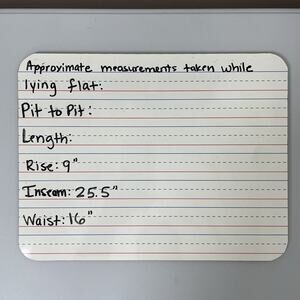 Approximate measurements taken while
lying flat:
Pit to Pit:
Length:
Rise: 9"
Inseam: 25.5"
Waist: 16"